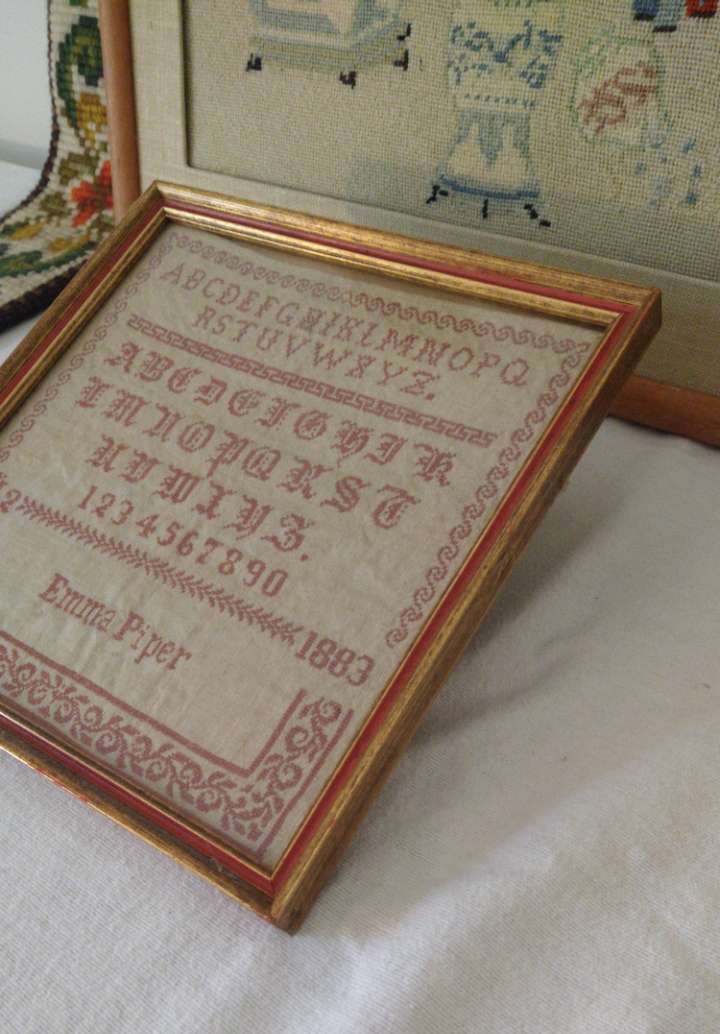 ABCDEFGHIKLMNOPQ
RSTUVWXYZ.
ABCDEFGHIK
LMNOPQRST
UVWXYZ.
1234567890
1883
Emma Piper